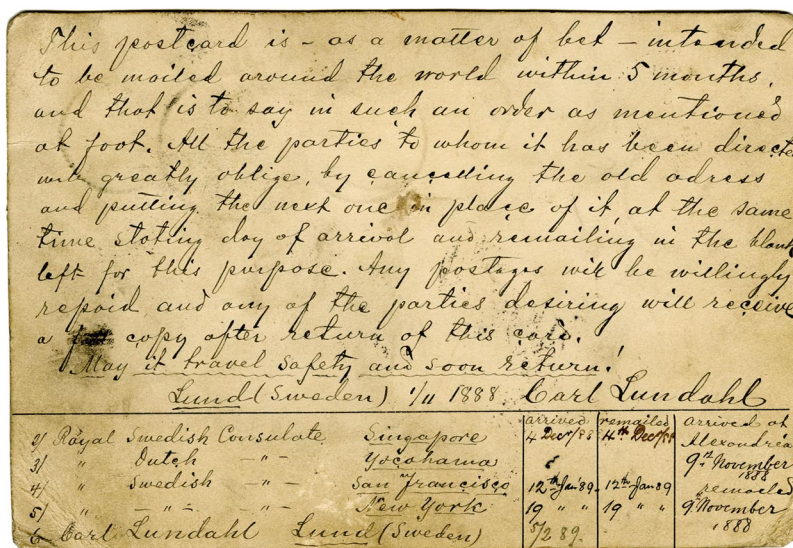 This postcard is – as a matter of bet – intended
to be mailed around the world within 5 months,
and that is to say in such an order as mentioned
at foot. All the parties to whom it has been directed
will greatly oblige, by cancelling the old adress
and putting the next one in place of it, at the same
time stating day of arrival and remailing in the blank
left for this purpose. Any postages will be willingly
repaid and any of the parties desiring will receive
a copy after return of this card.
May it travel safety and soon return!
Lund (Sweden) 1/11 1888 Carl Lundahl
arrived remailed arrived at
2/ Royal Swedish Consulate Singapore 4 Decr/88 4th Decr/88 Alexandrea
3/ " Dutch –"– Yocohama 9th November 1888
4/ " Swedish –"– San Francisco 12th Jan' 89. 12th Jan 89 remailed
5/ " –"– –"– New York 19 " " 19 " " 9th November
6 Carl Lundahl Lund (Sweden) 5/2 89. 1888